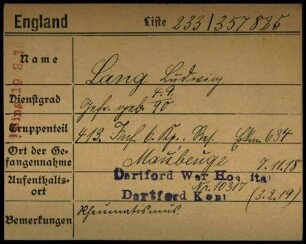 England Liste 233/357825
Name Lang Ludwig
4.9.
Dienstgrad Gefr. geb. 90
Truppenteil 413. Inf. 6. Kp. 634
Ort der Ge-
fangennahme Maubeuge 7.11.18
Aufenthalts-
ort Dartford War Hospital
Nr. 10317
Dartford Kent (3.2.19)
Bemerkungen Rheumatismus.